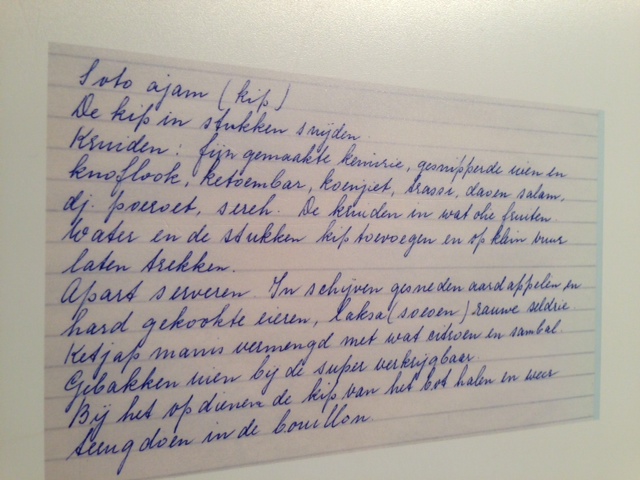 Soto ajam (kip)
De kip in stukken snijden.
Kruiden: fijngemaakte kemirie, gesnipperde uien en
knoflook, ketoembar, koenjiet, trassi, daoen salam,
dj. poeroet, sereh. De kruiden in wat olie fruiten.
Water en de stukken kip toevoegen en op klein vuur
laten trekken.
Apart serveren. In schijven gesneden aardappelen en
hard gekookte eieren, laksa (soeoen) rauwe seldrie.
Ketjap manis vermengd met wat citroen en sambal.
Gebakken uien bij de super verkrijgbaar.
Bij het opdienen de kip van het bot halen en weer
terug doen in de bouillon.